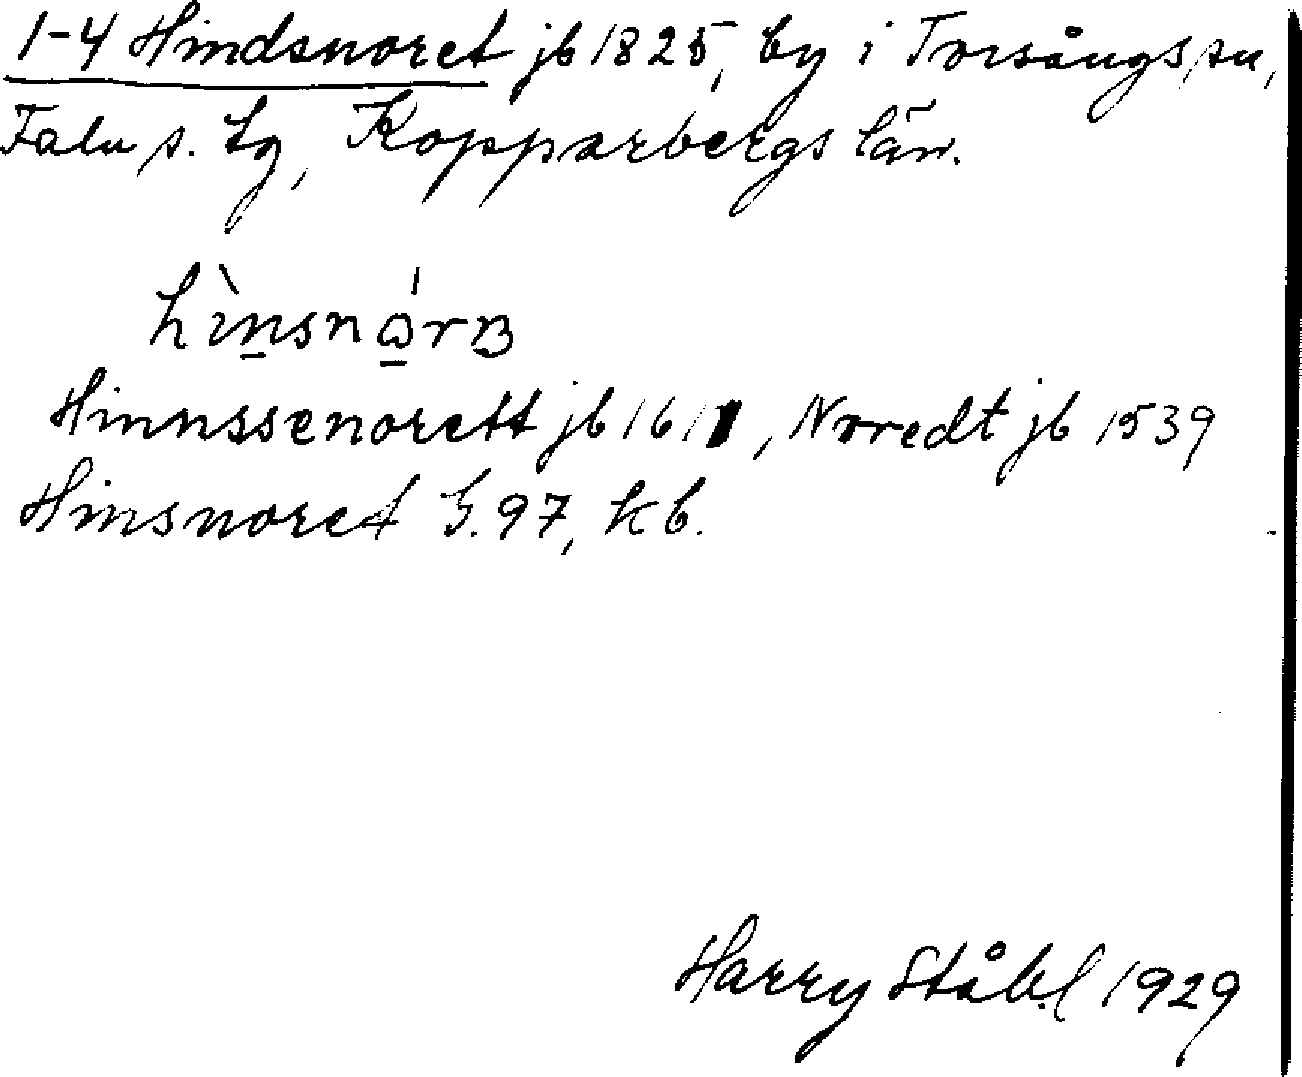 1-4 Hindsnoret jb 1825, by i Torsångs sn,
Falu s. tg, Kopparbergs län.
Hinnssenorett jb 161, Noredt jb 1539
Hinsnoret G. 97, kb.
Harry Ståhl 1929